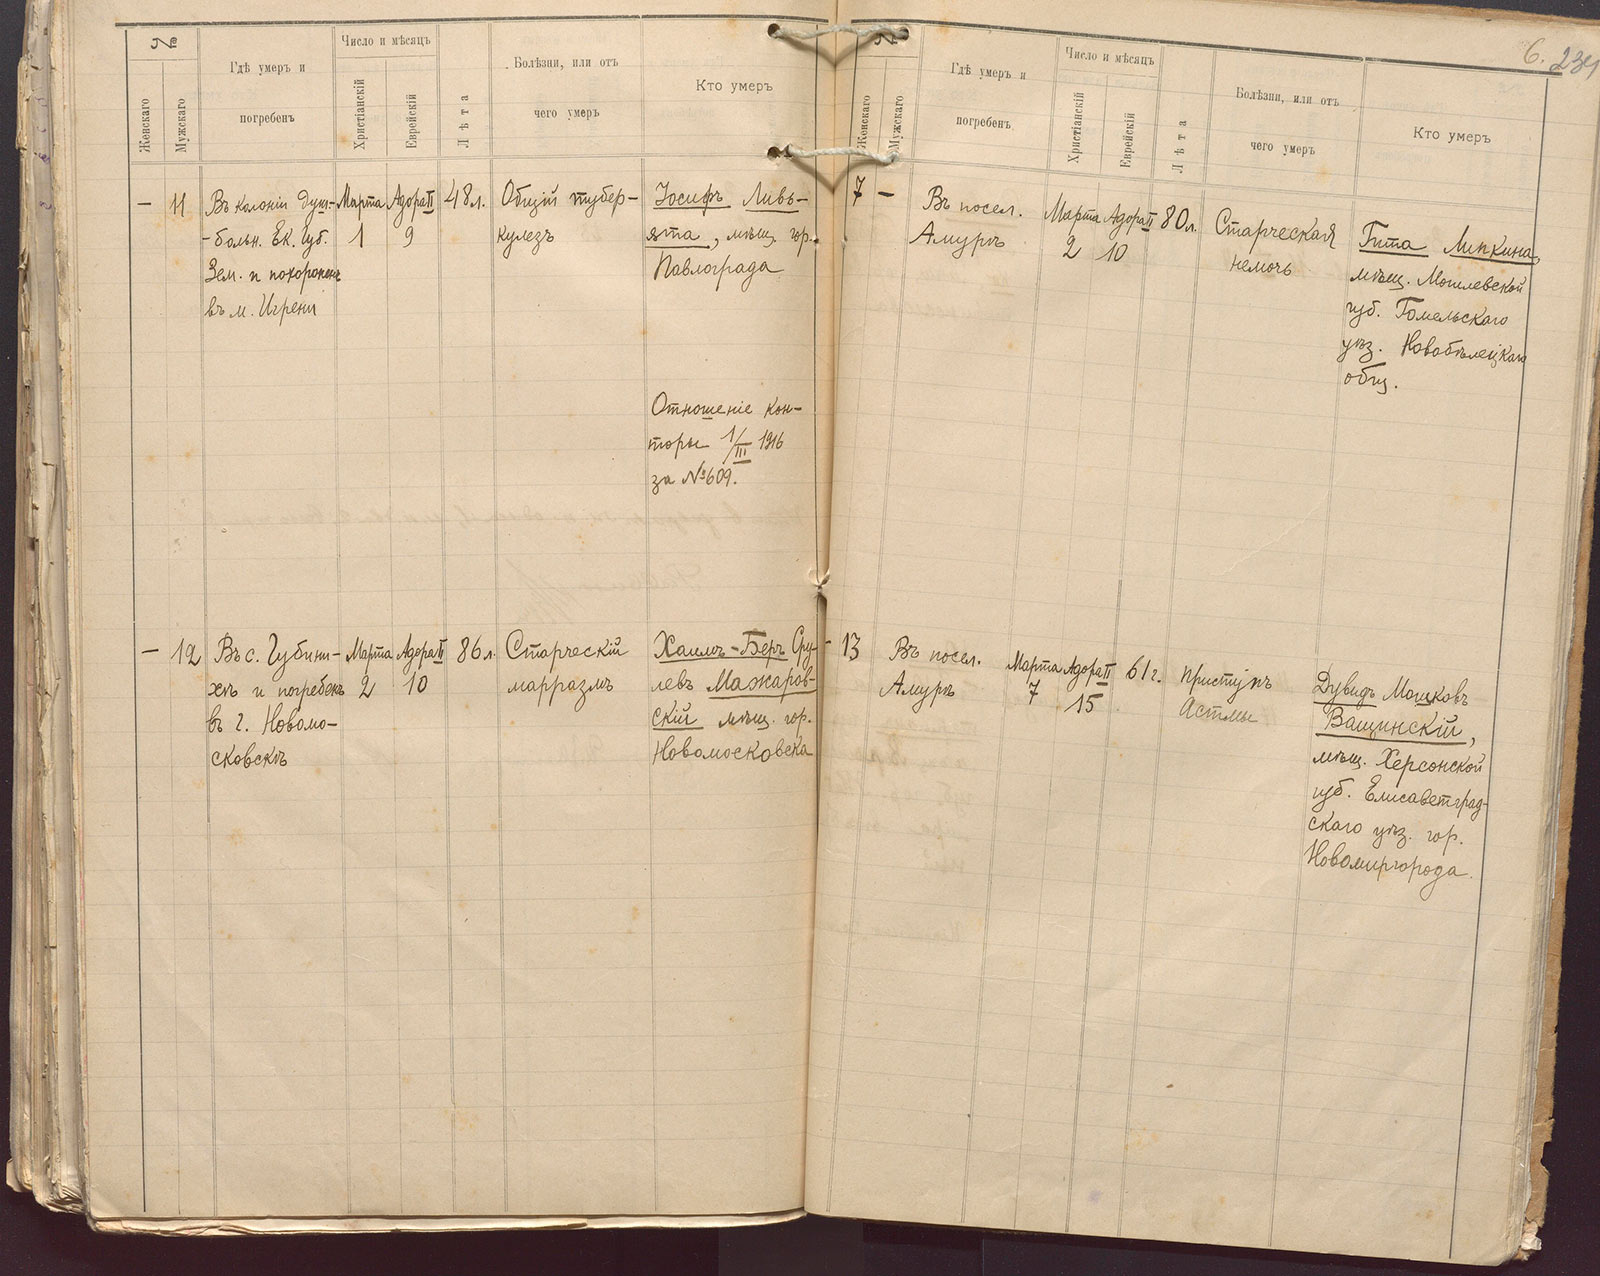 №
Женскаго
Мужскаго
Гдѣ умеръ и
погребенъ
Число и мѣсяцъ
Христіанскій
Еврейскій
Лѣта
Болѣзни, или отъ
чего умеръ
Кто умеръ
— 11
Въ колоніи душ-
-больн. Ек. Губ.
Зем. и похороненъ
въ м. Игрени
Марта
1
Адора II
9
48 л.
Общій тубер-
кулезъ
Іосифъ Ливъ-
ята, мѣщ. гор.
Павлограда
Отношеніе кон-
торы 1/III 1916
за № 609.
— 12
Въ с. Губини-
хѣ и погребенъ
въ г. Новомо-
сковскѣ
Марта
2
Адора II
10
86 л.
Старческій
марразмъ
Хаимъ-Беръ Сру-
левъ Мажаров-
скій мѣщ. гор.
Новомосковска
6. 234
№
Женскаго
Мужскаго
Гдѣ умеръ и
погребенъ
Число и мѣсяцъ
Христіанскій
Еврейскій
Лѣта
Болѣзни, или отъ
чего умеръ
Кто умеръ
7 —
Въ посел.
Амурѣ
Марта
2
Адора II
10
80 л.
Старческая
немочь
Гита Липкина,
мѣщ. Могилевской
губ. Гомельскаго
уѣз. Новобѣлецкаго
общ.
— 13
Въ посел.
Амурѣ
Марта
7
Адора II
15
61 г.
Приступъ
Астмы
Дувидъ Мошковъ
Ващинскій,
мѣщ. Херсонской
губ. Елисаветград-
скаго уѣз. гор.
Новомиргорода.